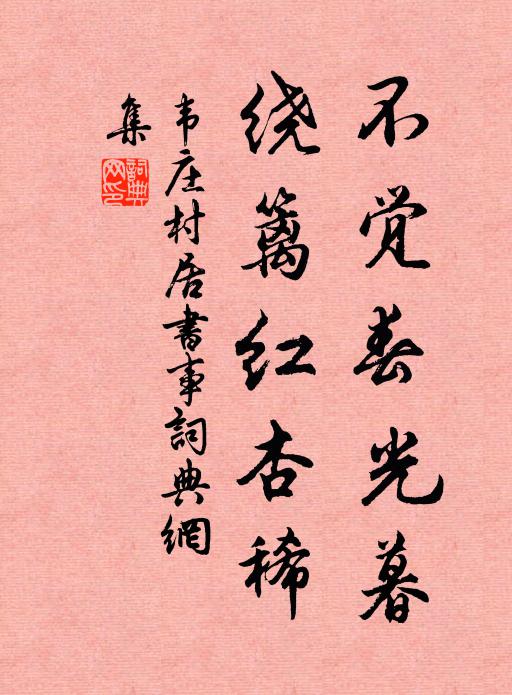 不觉春光暮
绕篱红杏稀
韦庄村居书事词典網
集
詞典
网印